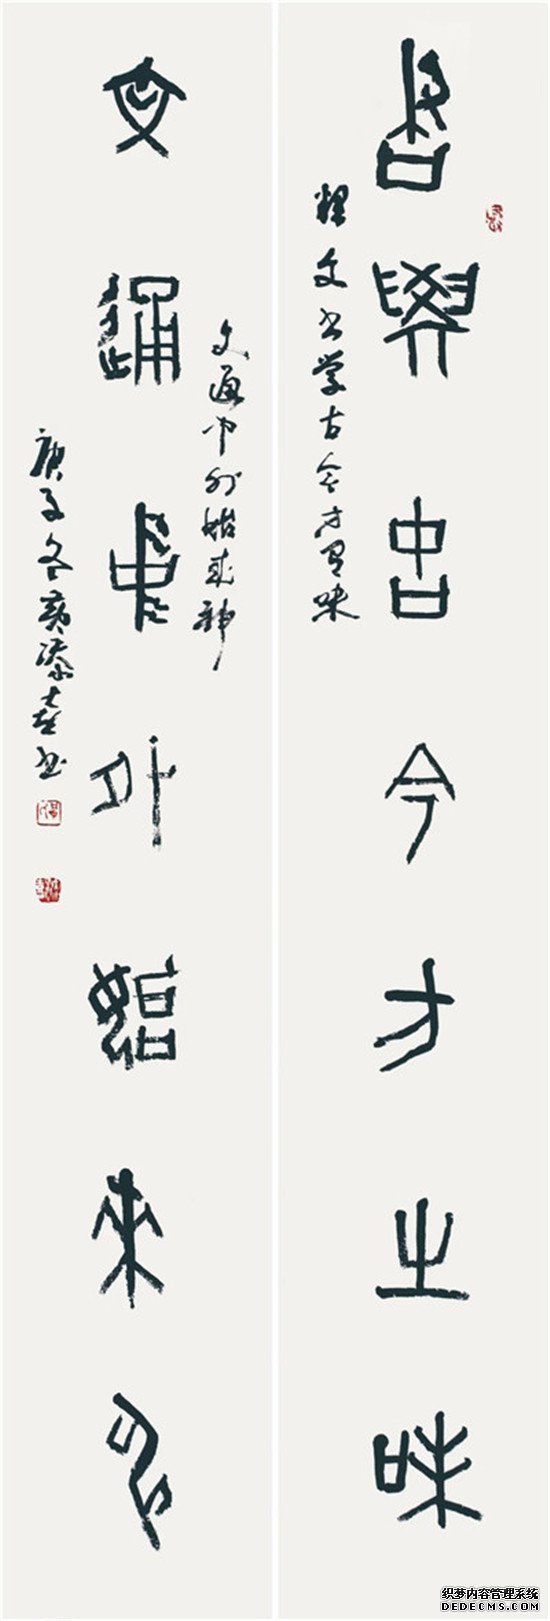 書學古今方有味
釋文書學古今方有味
文通中外始來神
文通中外始來神
庚子冬黃
织梦内容管理系统
DEDECMS.COM